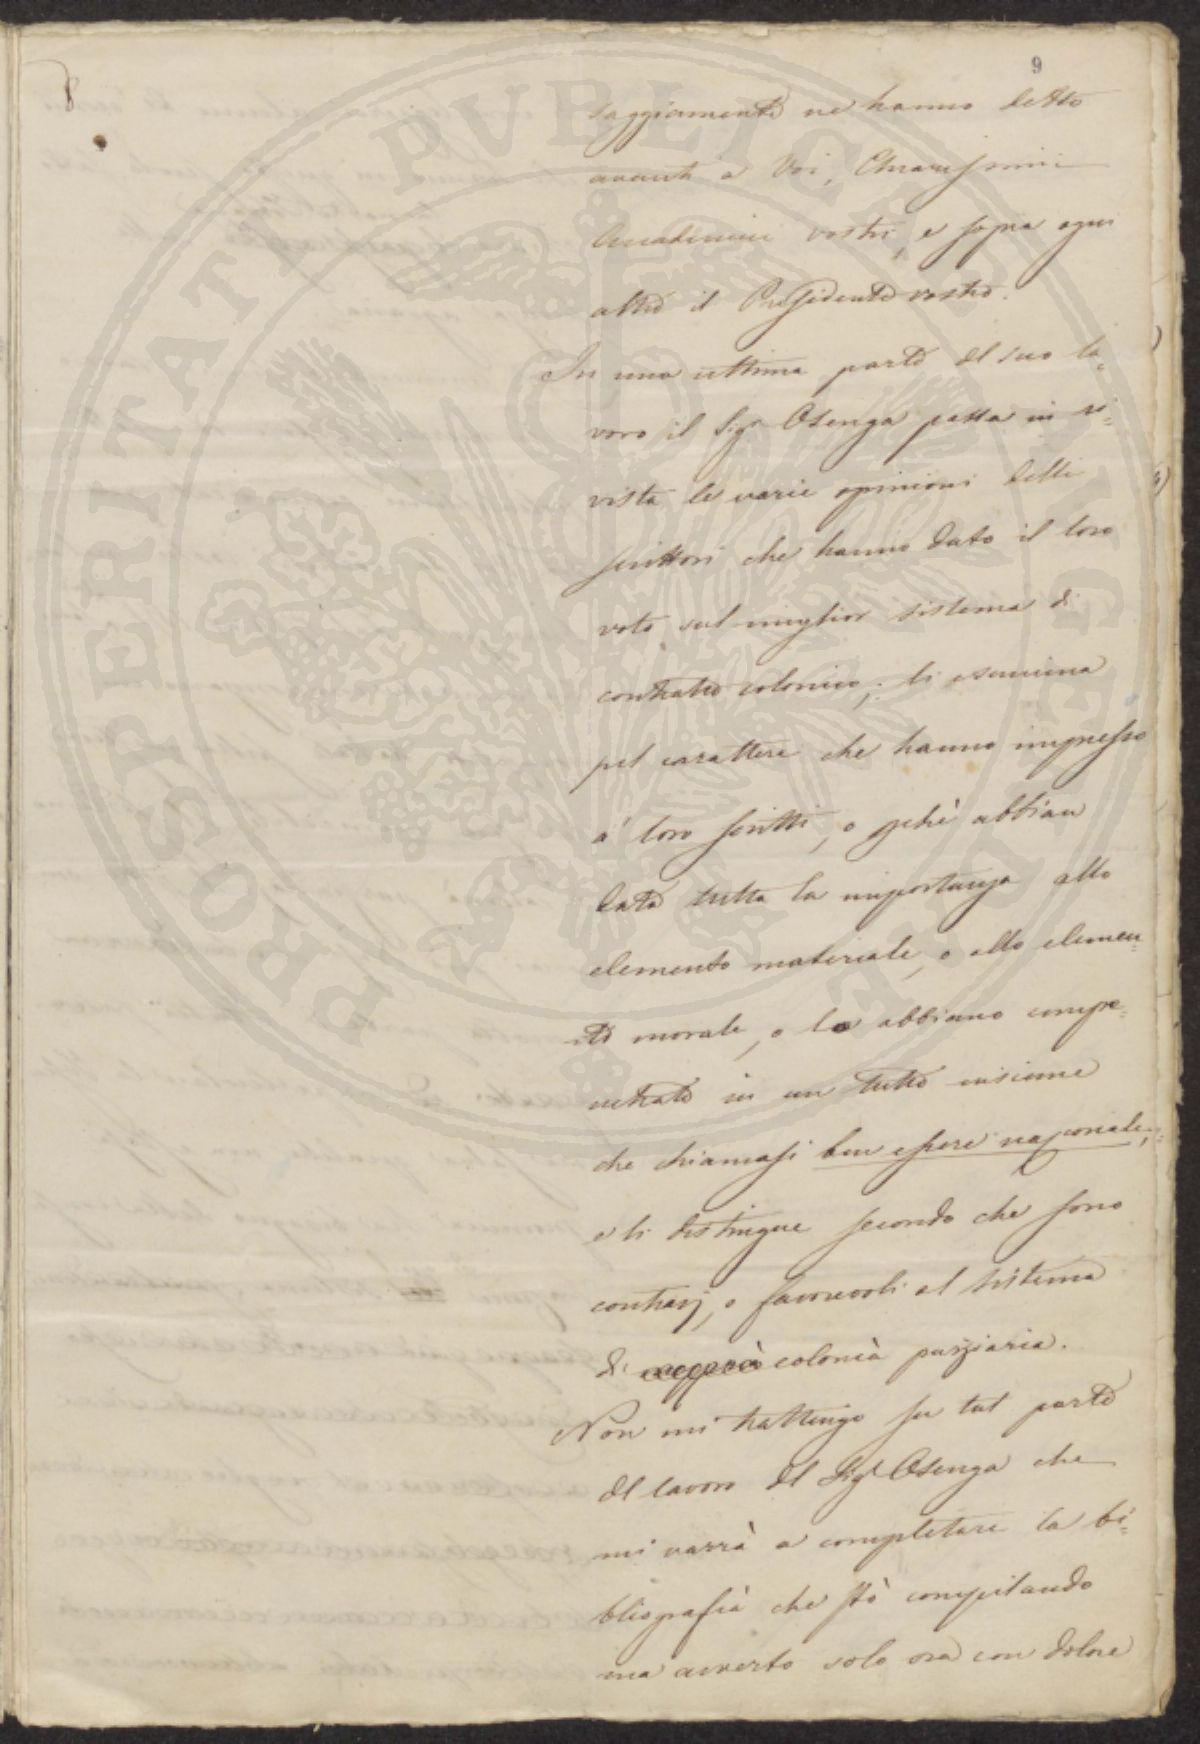 9
8
saggiamente ne hanno detto
avanti a Voi, Chiarissimi
Accademici vostri, e sopra ogni
altro il Presidente vostro.
In una ultima parte del suo la-
voro il Sigr Osenga passa in ri=
vista le varie opinioni delli
scrittori che hanno dato il loro
voto sul miglior sistema di
contratto colonico; li esamina
pel carattere che hanno impresso
a' loro scritti, o perchè abbian
dato tutta la importanza allo
elemento materiale, o allo elemen=
to morale, o lo abbiano compe=
netrato in un tutto insieme
che chiamasi ben essere nazionale;
e li distingue secondo che sono
contrarj, o favorevoli al sistema
di colonìa parziaria.
Non mi trattengo su tal parte
del lavoro del Sigr Osenga che
mi varrà a completare la bi=
bliografià che stò compilando
ma avverto solo ora con dolore
PROSPERITATI PVBLICAE AVGENDAE